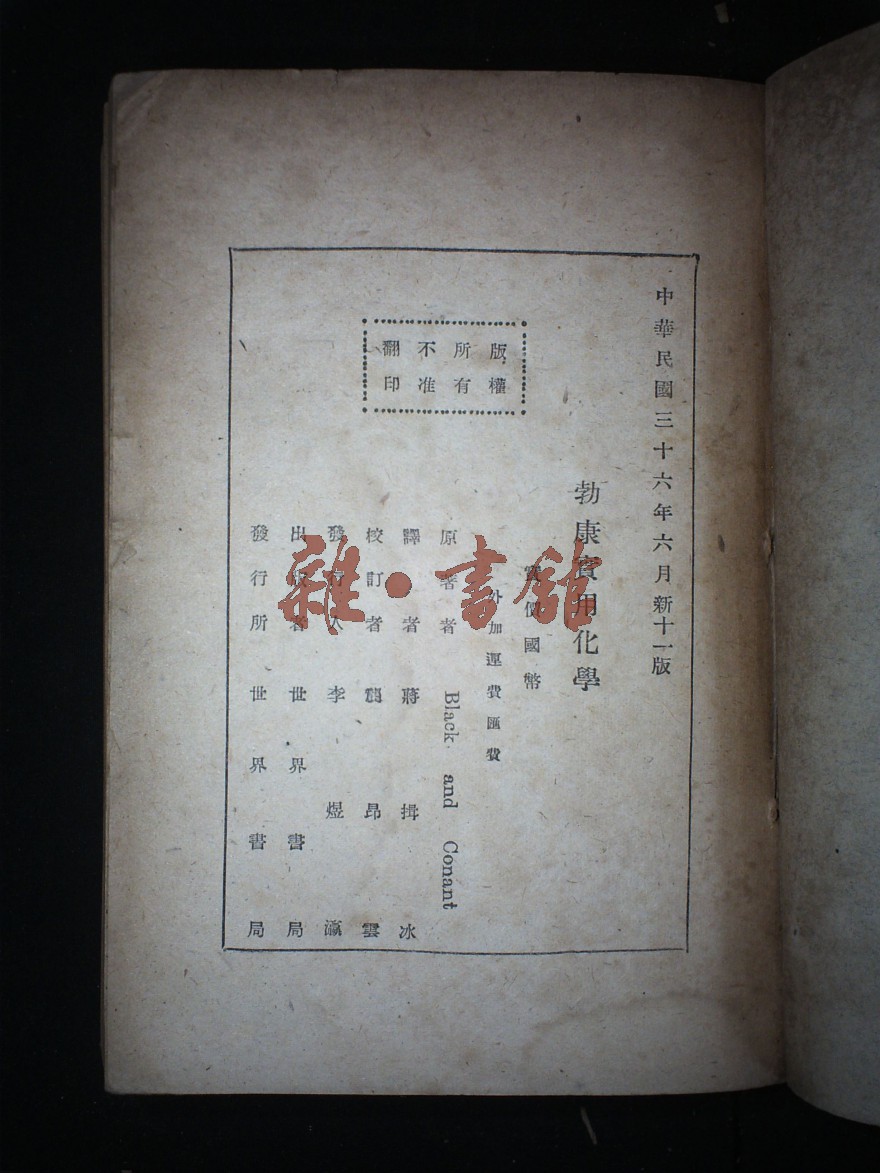 中華民國三十六年六月新十一版
勃康實用化學
實價國幣
外加運費匯費
版權
所有
不准
翻印
原著者 Black and Conant
譯者 蔣揖冰
校訂者 龔昂雲
發行人 李煜瀛
出版者 世界書局
發行所 世界書局
雜·書館